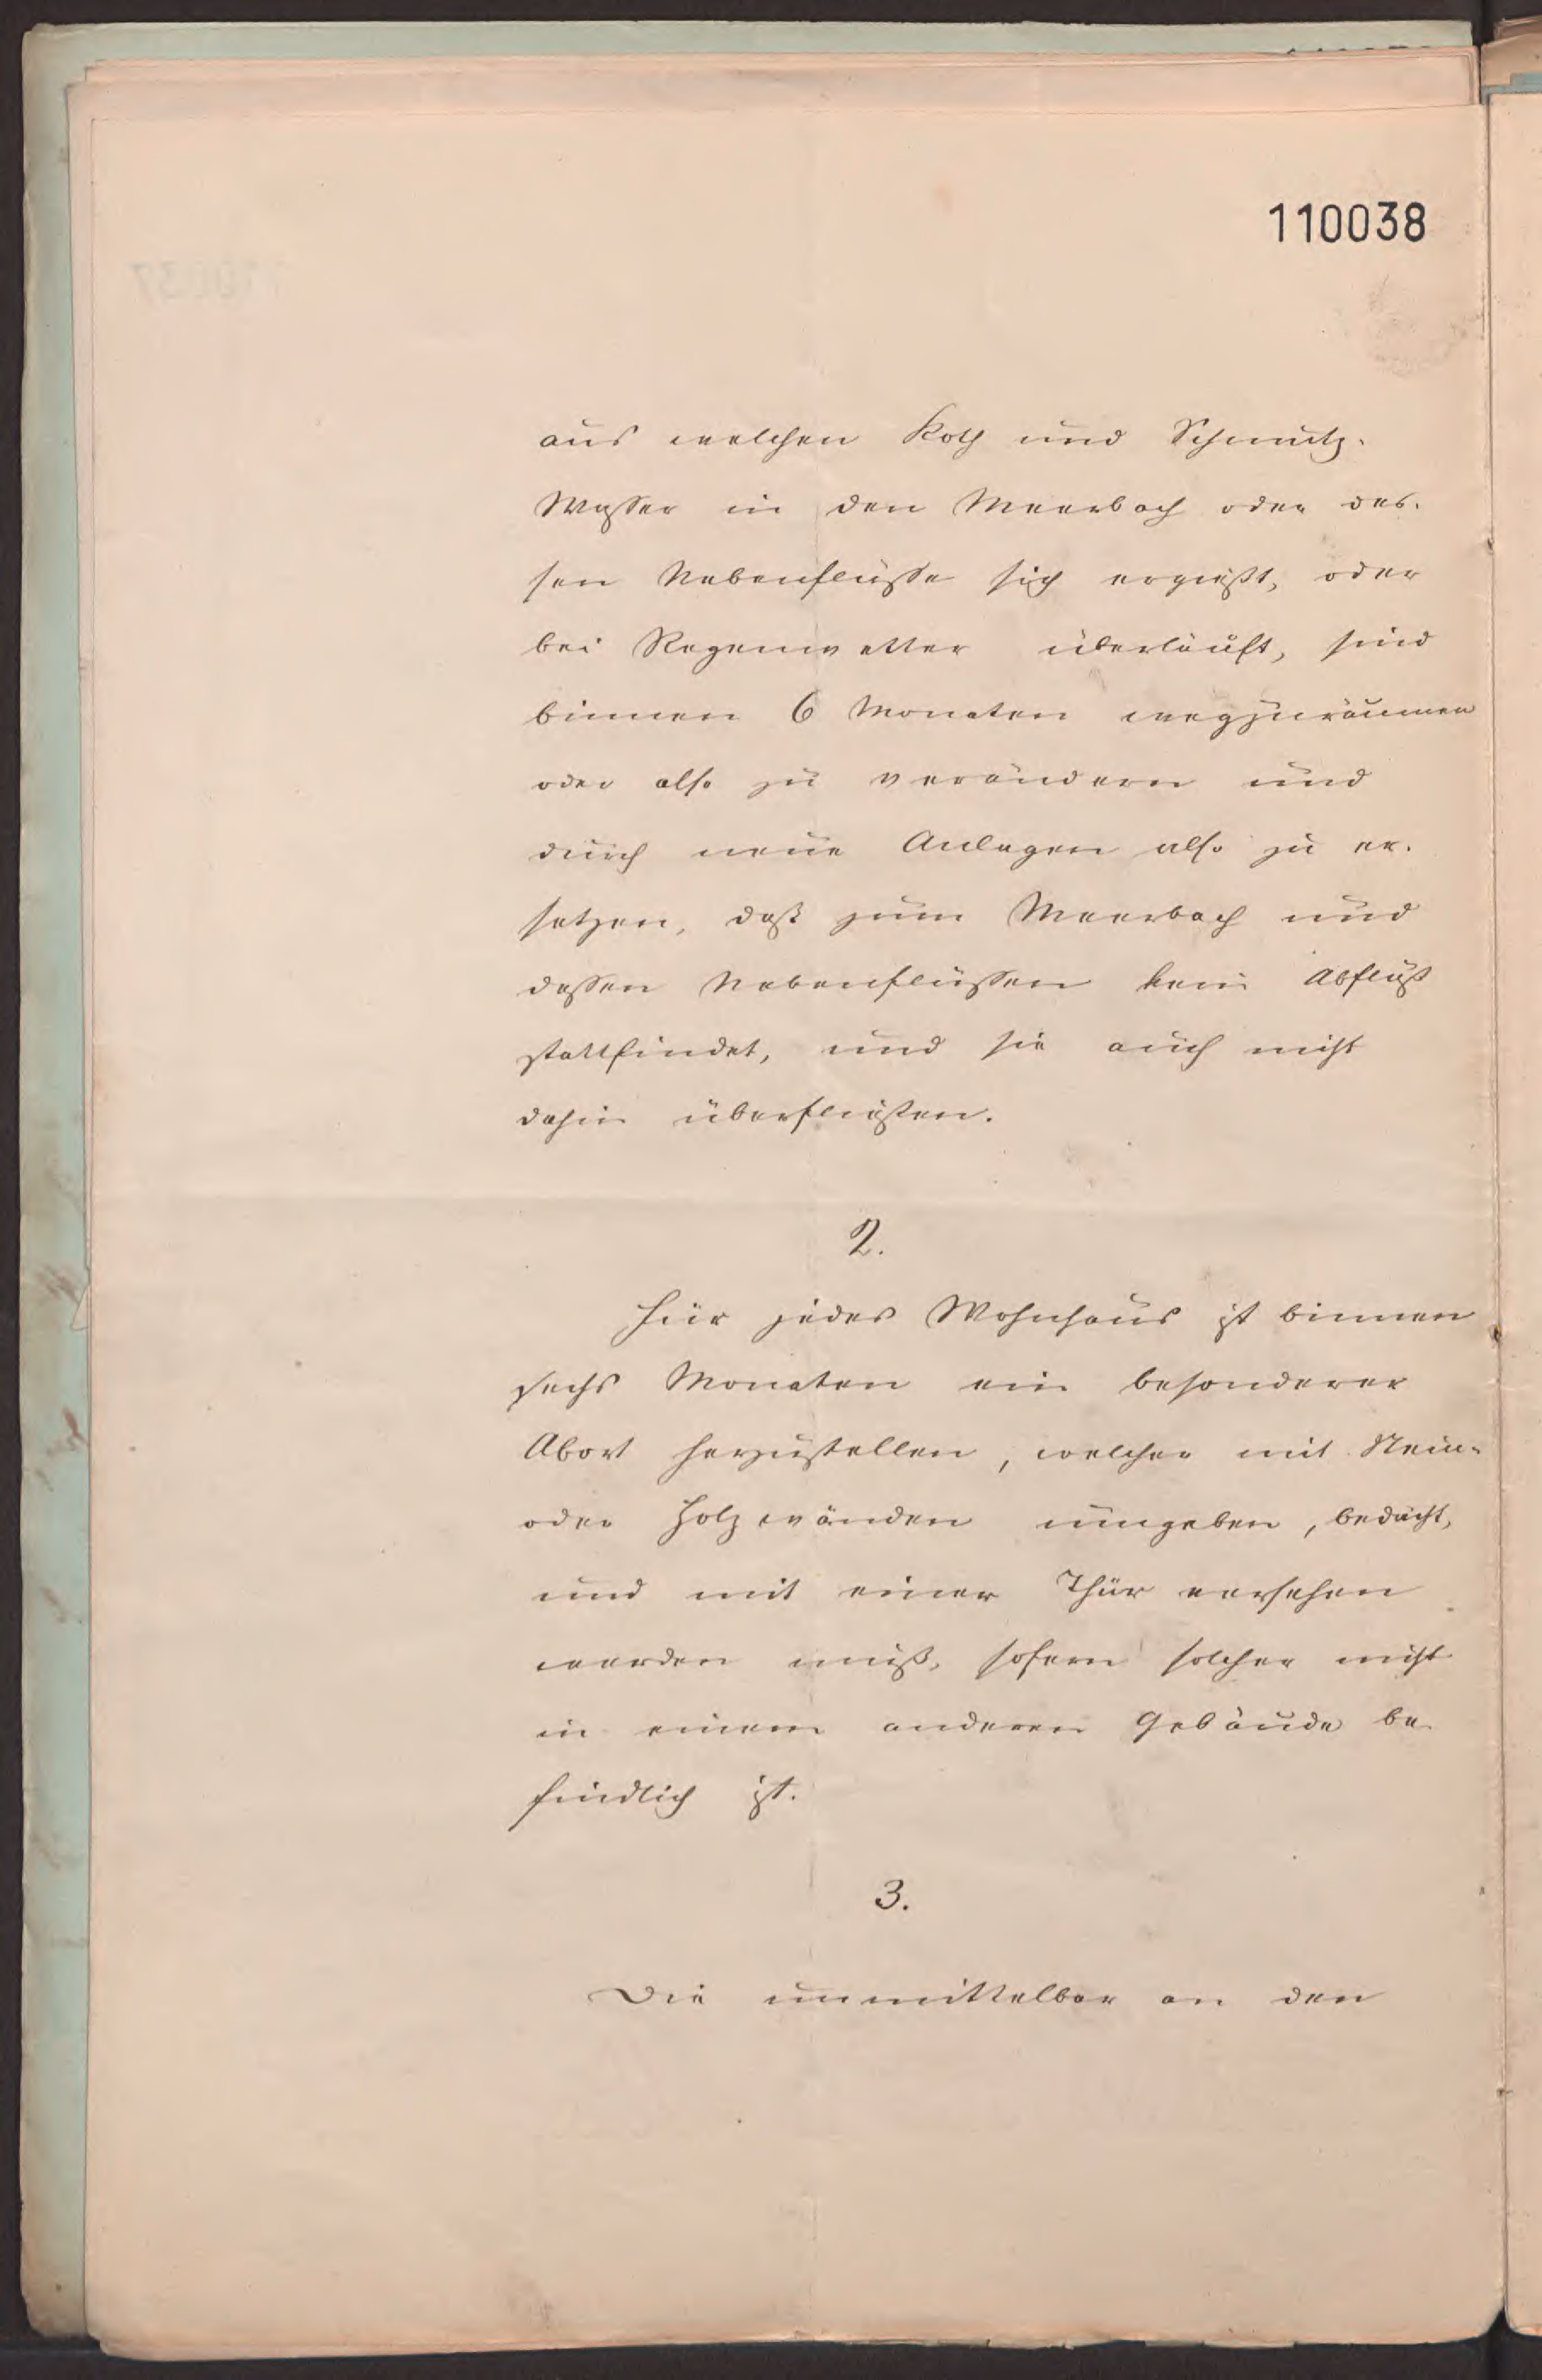 110038
aus welchen Koth und Schmutz-
Wasser in den Meerbach oder des-
sen Nebenflüsse sich ergießt, oder
bei Regenwetter überläuft, sind
binnen 6 Monaten wegzuräumen
oder also zu verändern und
durch neue Anlagen also zu er-
setzen, daß zum Meerbach und
dessen Nebenflüssen kein Abfluß
stattfindet, und sie auch nicht
dahin überfließen.
2.
Für jedes Wohnhaus ist binnen
sechs Monaten ein besonderer
Abort herzustellen, welcher mit Stein-
oder Holzwänden umgeben, bedacht,
und mit einer Thür versehen
werden muß, sofern solcher nicht
in einem anderen Gebäude be-
findlich ist.
3.
Die unmittelbar an den